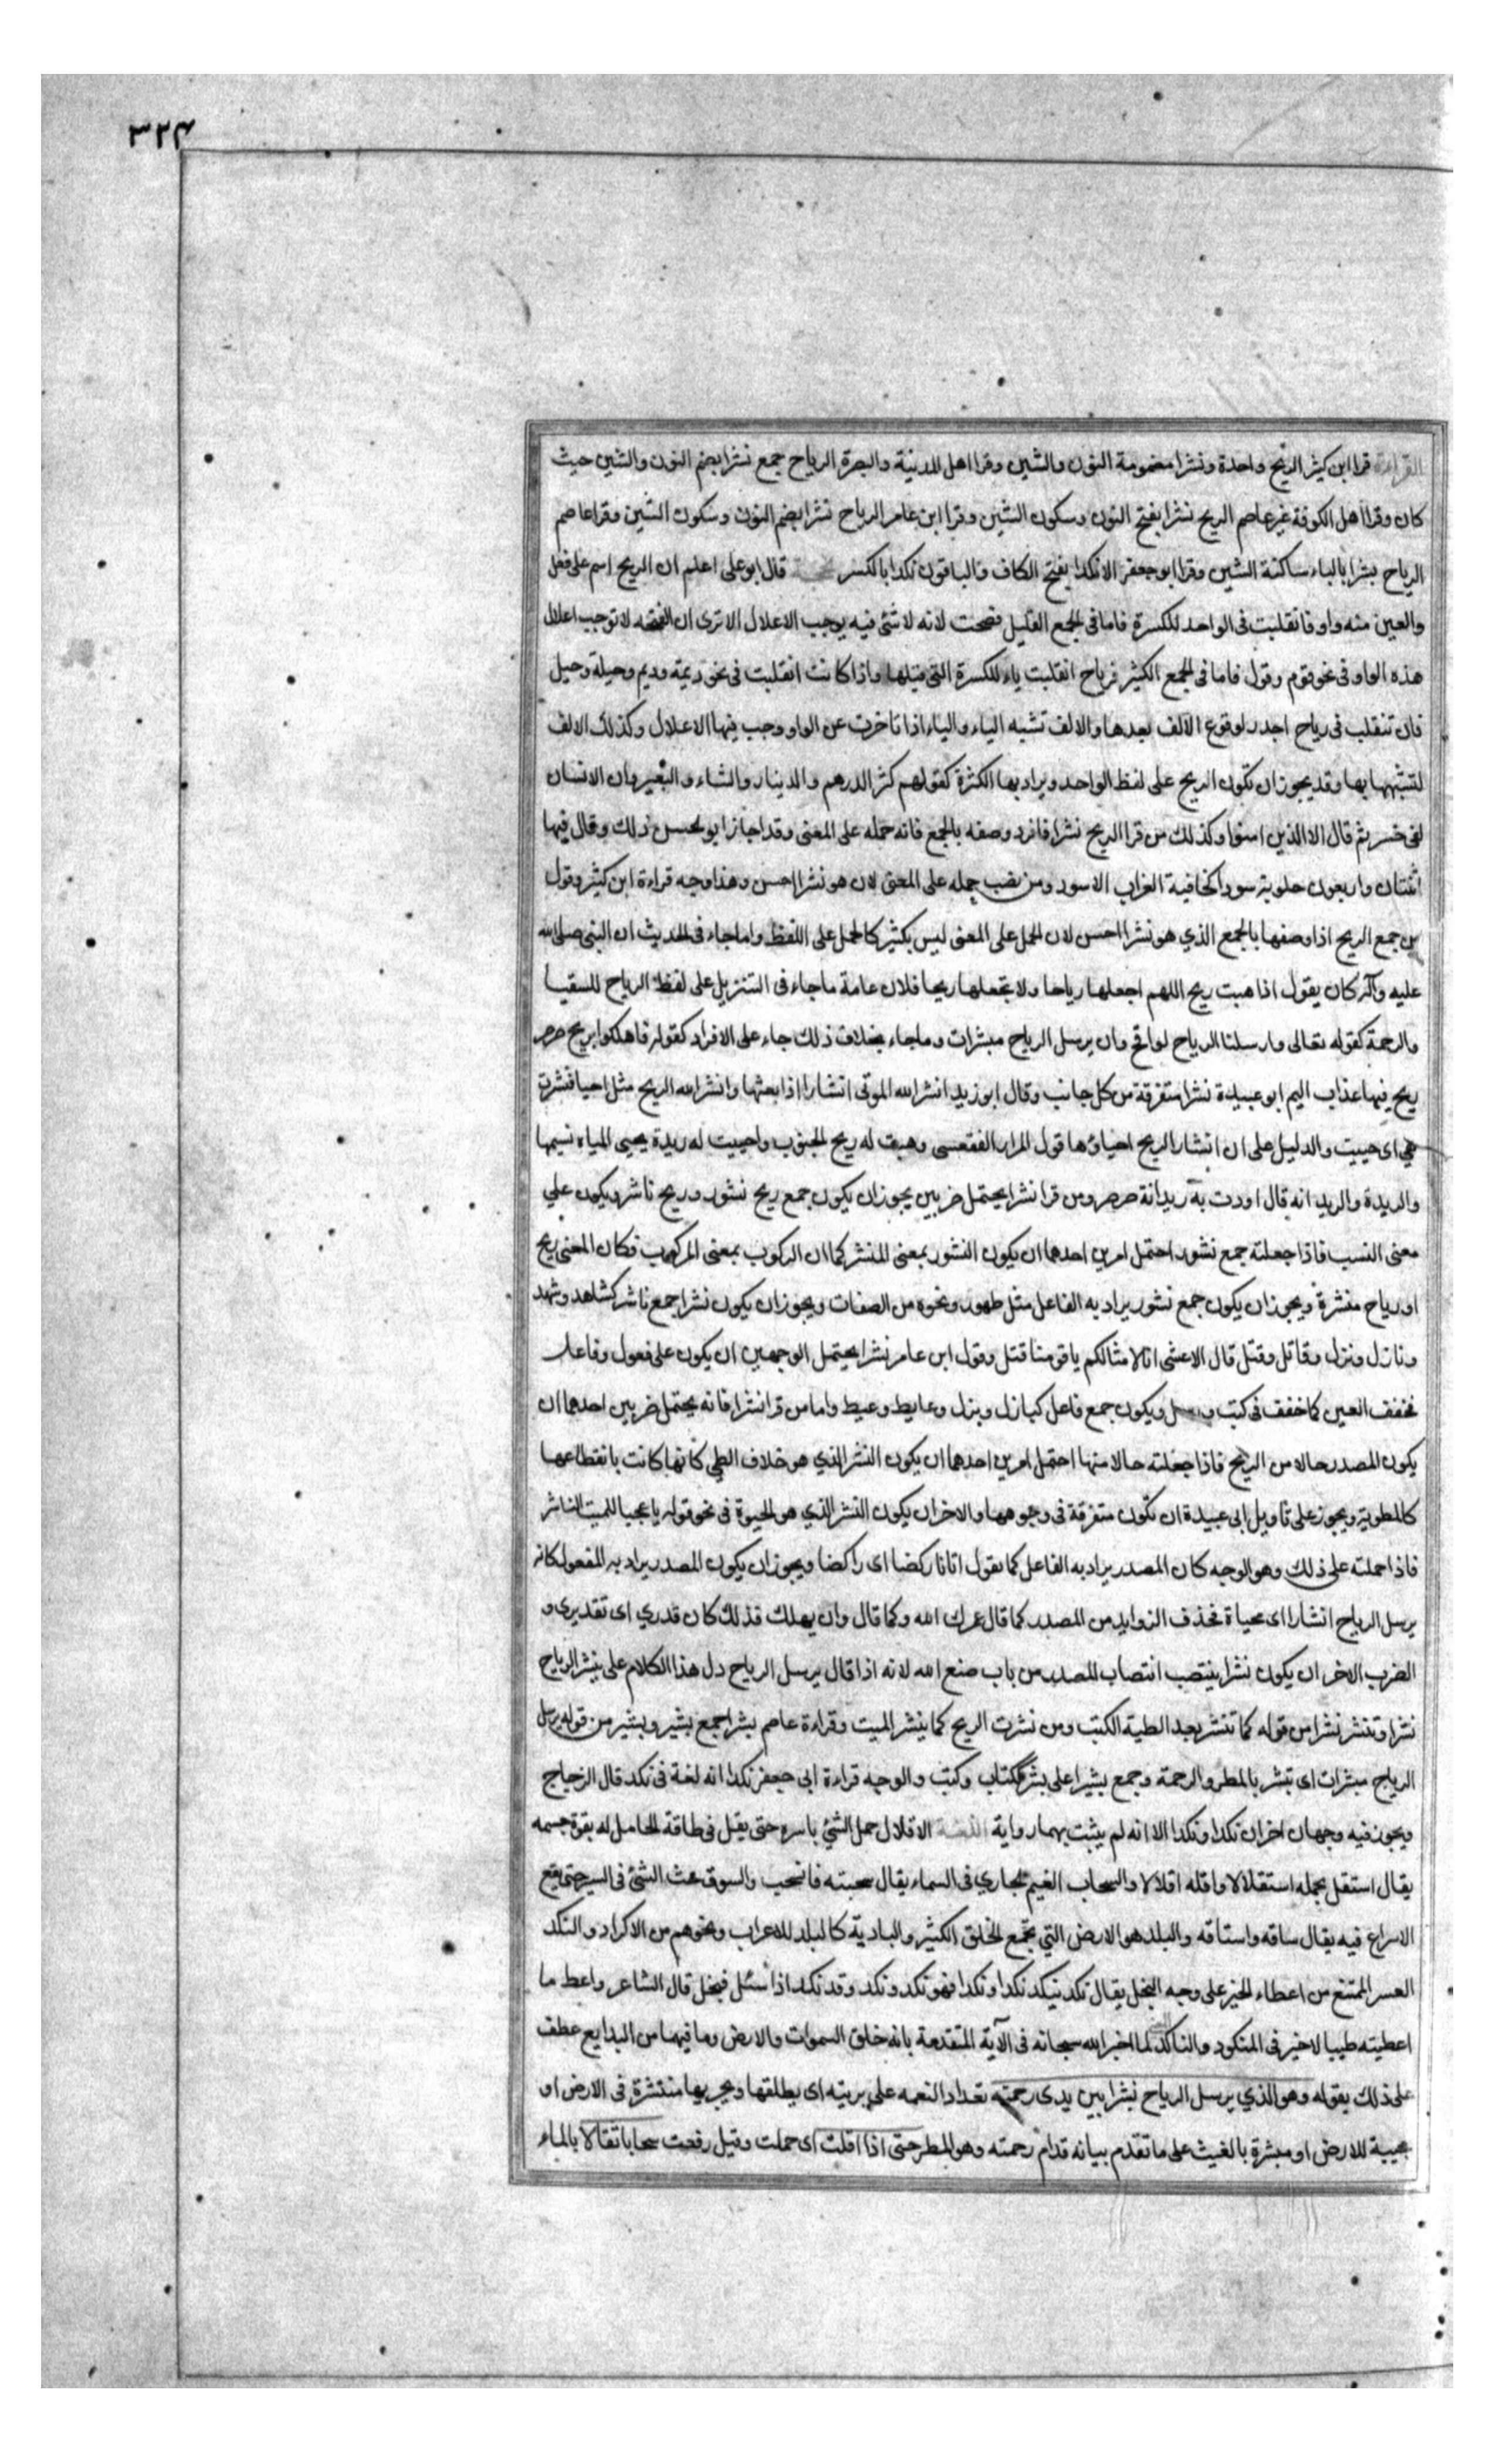 ٣٢۴
القراءة قرا ابن كثير الريح واحدة ونشرا مضمومة النون والشين وقرا اهل المدينة والبصرة الرياح جمع نشرا بضم النون والشين حيث
كان وقرا اهل الكوفة غير عاصم الريح نشرا بفتح النون وسكون الشين وقرا ابن عامر الرياح نشرا بضم النون وسكون الشين وقرا عاصم
الرياح بشرا بالباء ساكنة الشين وقرا ابو جعفر الا نكدا بفتح الكاف والباقون نكدا بالكسر الحجة قال ابو علي اعلم ان الريح اسم على فعل
والعين منه واو فانقلبت في الواحد للكسرة فاما في الجمع القليل فصحت لانه لا شئ فيه يوجب الاعلال الا ترى ان الفتحه لا توجب اعلال
هذه الواو في نحو قوم وقول فاما في الجمع الكثير فرياح انقلبت ياء للكسرة التي قبلها واذا كانت انقلبت في نحو ديمة وديم وحيلة وحيل
فان تنقلب في رياح اجدر لوقوع الالف بعدها والالف تشبه الياء والياء اذا تاخرت عن الواو وجب فيها الاعلال وكذلك الالف
لتشبهها بها وقد يجوز ان تكون الريح على لفظ الواحد ويراد بها الكثرة كقولهم كثر الدرهم والدينار والشاء والبعير وان الانسان
لفي خسر ثم قال الا الذين امنوا وكذلك من قرا الريح نشرا فافرد وصفه بالجمع فانه حمله على المعنى وقد اجاز ابو الحسن ذلك وقال فيها
اثنتان واربعون حلوبة سودا كخافية الغراب الاسود ومن نصب حمله على المعنى لان هو نشرا احسن وهذا وجه قراءة ابن كثير وقول
من جمع الريح اذا وصفها بالجمع الذي هو نشرا احسن لان الحمل على المعنى ليس بكثير كالحمل على اللفظ واما جاء في الحديث ان النبي صلى الله
عليه وآله كان يقول اذا هبت ريح اللهم اجعلها رياحا ولا تجعلها ريحا فلان عامة ما جاء في التنزيل على لفظ الرياح للسقيا
والرحمة كقوله تعالى وارسلنا الرياح لواقح وان يرسل الرياح مبشرات وما جاء بخلاف ذلك جاء على الافراد كقوله فاهلكوا بريح صرصر
ريح فيها عذاب اليم ابو عبيدة نشرا متفرقة من كل جانب وقال ابو زيد انشر الله الموتى انشارا اذا بعثها وانشر الله الريح مثل احيا فنشرت
هي اي حييت والدليل على ان انشار الريح احياؤها قول المرار الفقعسي وهبت له ريح الجنوب واحييت له ريدة يحيى المياه نسيمها
والريدة والريدانه قال اودت به ريدانة صرصر ومن قرا نشرا يحتمل ضربين يجوز ان يكون جمع ريح نشور وريح ناشر ويكون علي
معنى النسب فاذا جعلته جمع نشور احتمل امرين احدهما ان يكون النشور بمعنى المنشر كما ان الركوب بمعنى المركوب فكان المعنى ريح
او رياح منشرة ويجوز ان يكون جمع نشور يراد به الفاعل مثل طهور ونحوه من الصفات ويجوز ان يكون نشرا جمع ناشر كشاهد وشهد
ونازل ونزل وقاتل وقتل قال الاعشى انا لامثالكم يا قومنا قتل وقول ابن عامر نشرا يحتمل الوجهين ان يكون على فعول وفاعل
فخفف العين كما خفف في كتب ورسل ويكون جمع فاعل كبازل وبزل وعايط وعيط واما من قرا نشرا فانه يحتمل ضربين احدهما ان
يكون المصدر حالا من الريح فاذا جعلته حالا منها احتمل امرين احدهما ان يكون النشر الذي هو خلاف الطي كانها كانت بانقطاعها
كالمطوية ويجوز على تاويل ابي عبيدة ان تكون متفرقة في وجوهها والاخر ان يكون النشر الذي هو الحيوة في نحو قوله يا عجبا للميت الناشر
فاذا حملته على ذلك وهو الوجه كان المصدر يراد به الفاعل كما يقول اتانا ركضا اى راكضا ويجوز ان يكون المصدر يراد به المفعول كانه
يرسل الرياح انشارا اى محياة فحذف الزوايد من المصدر كما قال عمرك الله وكما قال وان يهلك فذلك كان قدري اى تقديري و
الضرب الاخر ان يكون نشرا ينتصب انتصاب المصدر من باب صنع الله لانه اذا قال يرسل الرياح دل هذا الكلام على ينشر الرياح
نشرا وتنشر نشرا من قوله كما تنشر بعد الطية الكتب ومن نشرت الريح كما ينشر الميت وقراءة عاصم بشرا جمع بشير وبشير من قوله يرسل
الرياح مبشرات اى تبشر بالمطر والرحمة وجمع بشيرا على بشر ككتاب وكتب والوجه قراءة ابي جعفر نكدا انه لغة في نكد قال الزجاج
ويجوز فيه وجهان اخران نكدا ونكدا الا انه لم يثبت بهما رواية اللغة الاقلال حمل الشئ باسره حتى يقل في طاقة الحامل له بقوة جسمه
يقال استقل بحمله استقلالا واقله اقلالا والسحاب الغيم الجاري في السماء يقال سحبته فانسحب والسوق حث الشئ في السير حتى يقع
الاسراع فيه يقال ساقه واستاقه والبلد هو الارض التي تجمع الخلق الكثير والبادية كالبلد للاعراب ونحوهم من الاكراد والنكد
العسر الممتنع من اعطاء الخير على وجه البخل يقال نكد ينكد نكدا ونكدا فهو نكد ونكد وقد نكد اذا سئل فبخل قال الشاعر واعط ما
اعطيته طيبا لا خير في المنكود والناكد لما اخبر الله سبحانه في الآية المتقدمة بانه خلق السموات والارض وما فيهما من البدايع عطف
على ذلك بقوله وهو الذي يرسل الرياح بشرا بين يدى رحمته تعداد النعمه على بريته اى يطلقها ويجريها منتشرة في الارض او
محيية للارض او مبشرة بالغيث على ما تقدم بيانه قدام رحمته وهو المطر حتى اذا اقلت اى حملت وقيل رفعت سحابا ثقالا بالماء